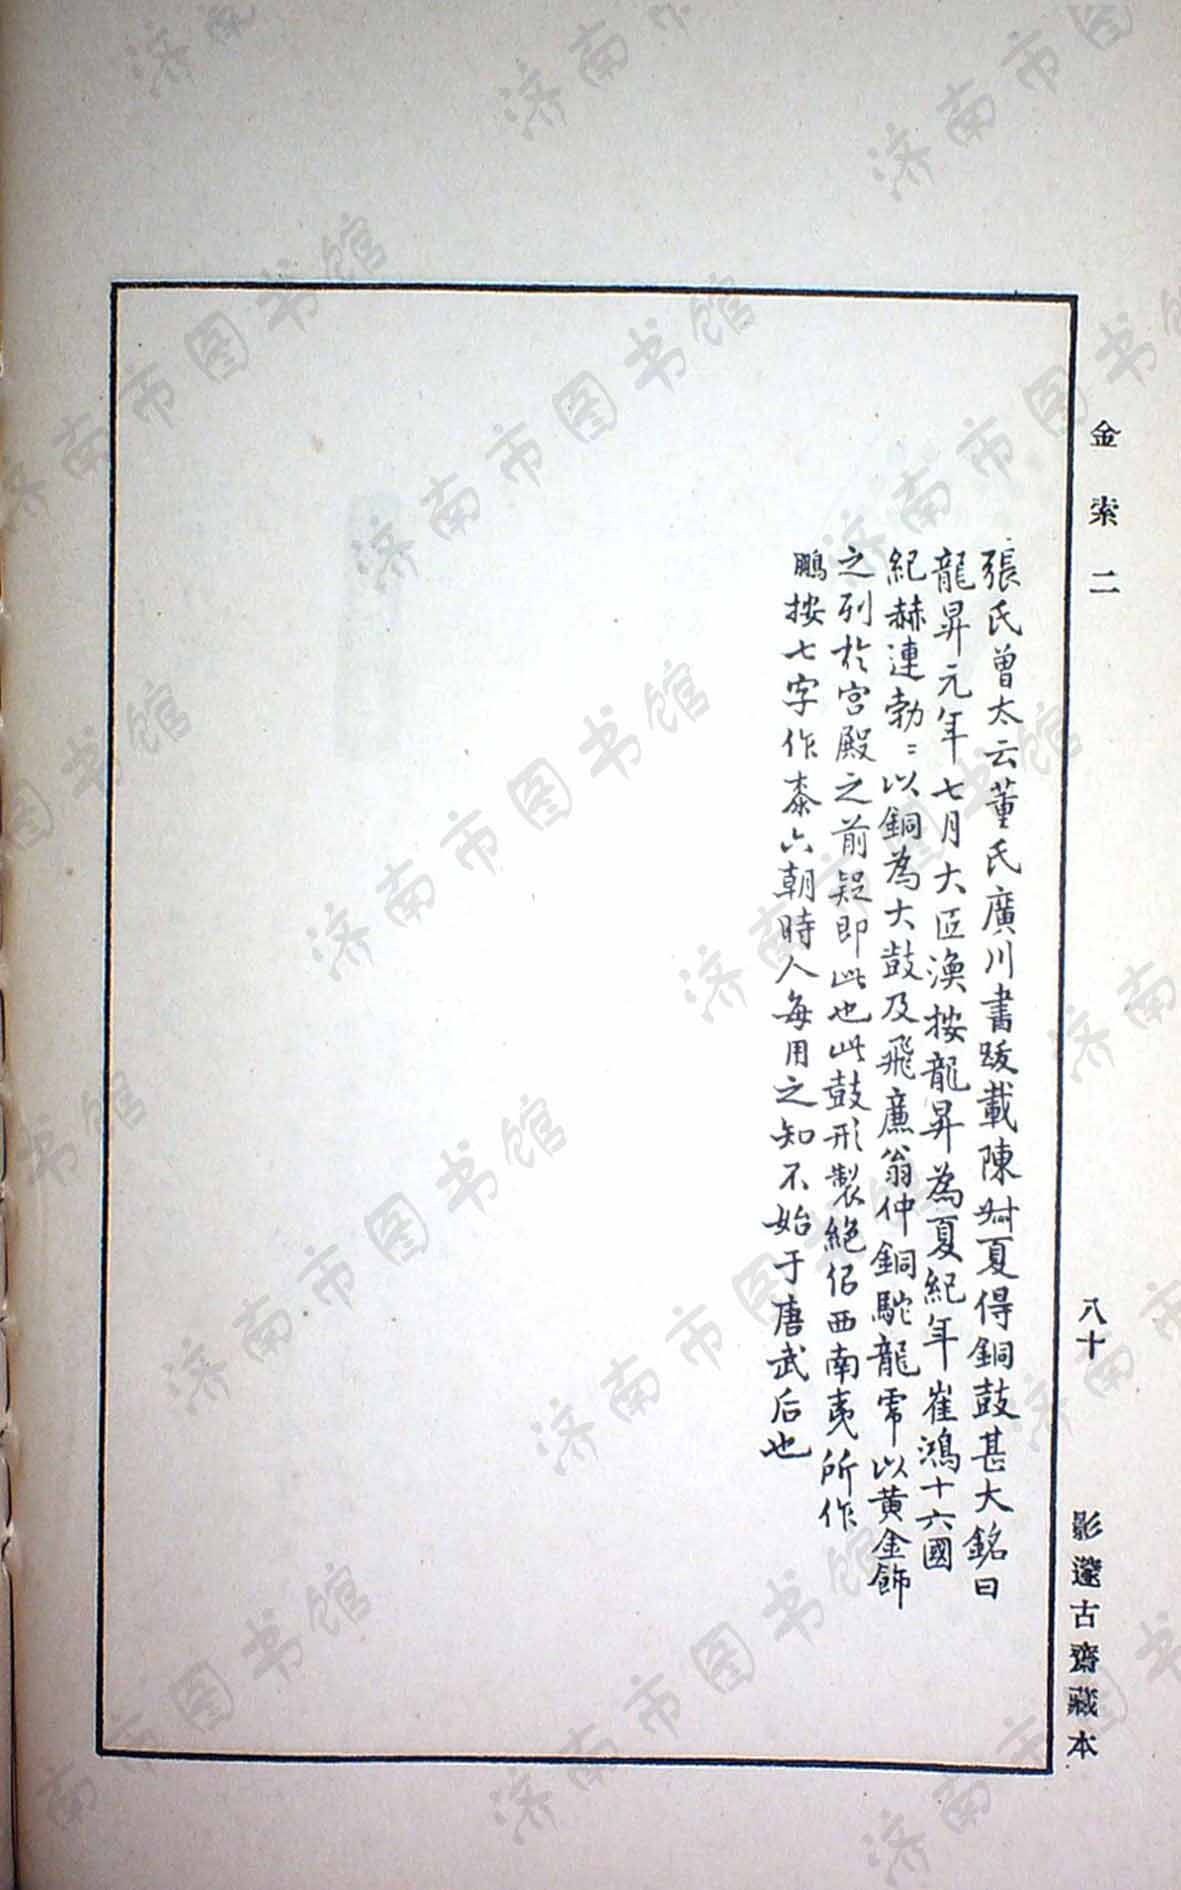 金索二
八十
影邃古齋藏本
張氏曾太云董氏廣川書跋載陳夏得銅鼓甚大銘曰
龍昇元年七月大匠渙按龍昇為夏紀年崔鴻十六國
紀赫連勃〻以銅為大鼓及飛廉翁仲銅駝龍雩以黃金飾
之列於宮殿之前疑即此也此鼓形製絕佀西南夷所作
鵬按七字作桼六朝時人每用之知不始于唐武后也
济南市图书馆